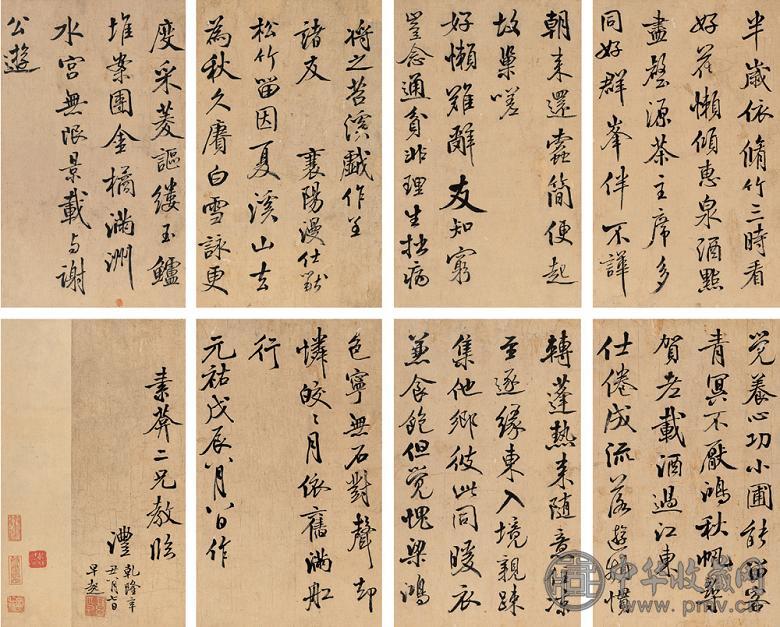 將之苕溪戲作呈
諸友 襄陽漫仕黻
松竹留因夏溪山去
為秋久賡白雪詠更
度采菱謳縷玉鱸
堆案團金橘滿洲
水宮無限景載与謝
公遊
半歲依脩竹三時看
好花懶傾惠泉酒點
盡壑源茶主席多
同好群峯伴不譁
朝来還蠹簡便起
故巢嗟
好懶難辭友知窮
豈念通貧非理生拙病
覺養心功小圃能留客
青冥不厭鴻秋帆尋
賀老載酒過江東
仕倦成流落遊頻慣
轉蓬熱来随意住凉
至逐緣東入境親疎
集他鄉彼此同暖衣
兼食飽但覺愧梁鴻
色寧無石對聲却
憐皎々月依舊滿舡
行
元祐戊辰八月八日作
二兄教臨
灃
乾隆辛
丑八月
早起
中华收藏网
www.pmv.cn